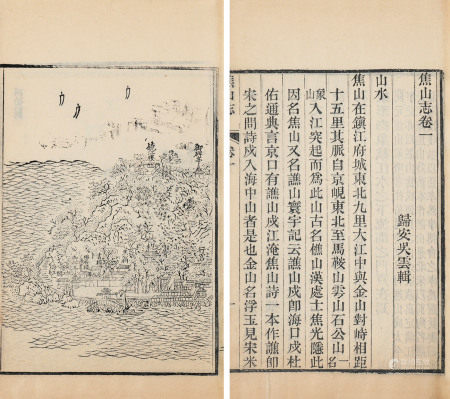 焦山志卷一
歸安吳雲輯
山水
焦山在鎮江府城東北九里大江中與金山對峙相距
十五里其脈自京峴東北至馬鞍山雩山石公山一名
象山入江突起而爲此山古名樵山漢處士焦光隱此
因名焦山又名譙山寰宇記云譙山戍卽海口戍杜
佑通典言京口有譙山戍江淹焦山詩一本作譙卽
宋之問詩戍入海中山者是也金山名浮玉見宋米
焦山志
卷一